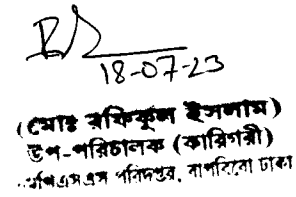 18-07-23
(মোঃ রফিকুল ইসলাম)
উপ-পরিচালক (কারিগরী)
পরিদপ্তর, বাপবিবো ঢাকা